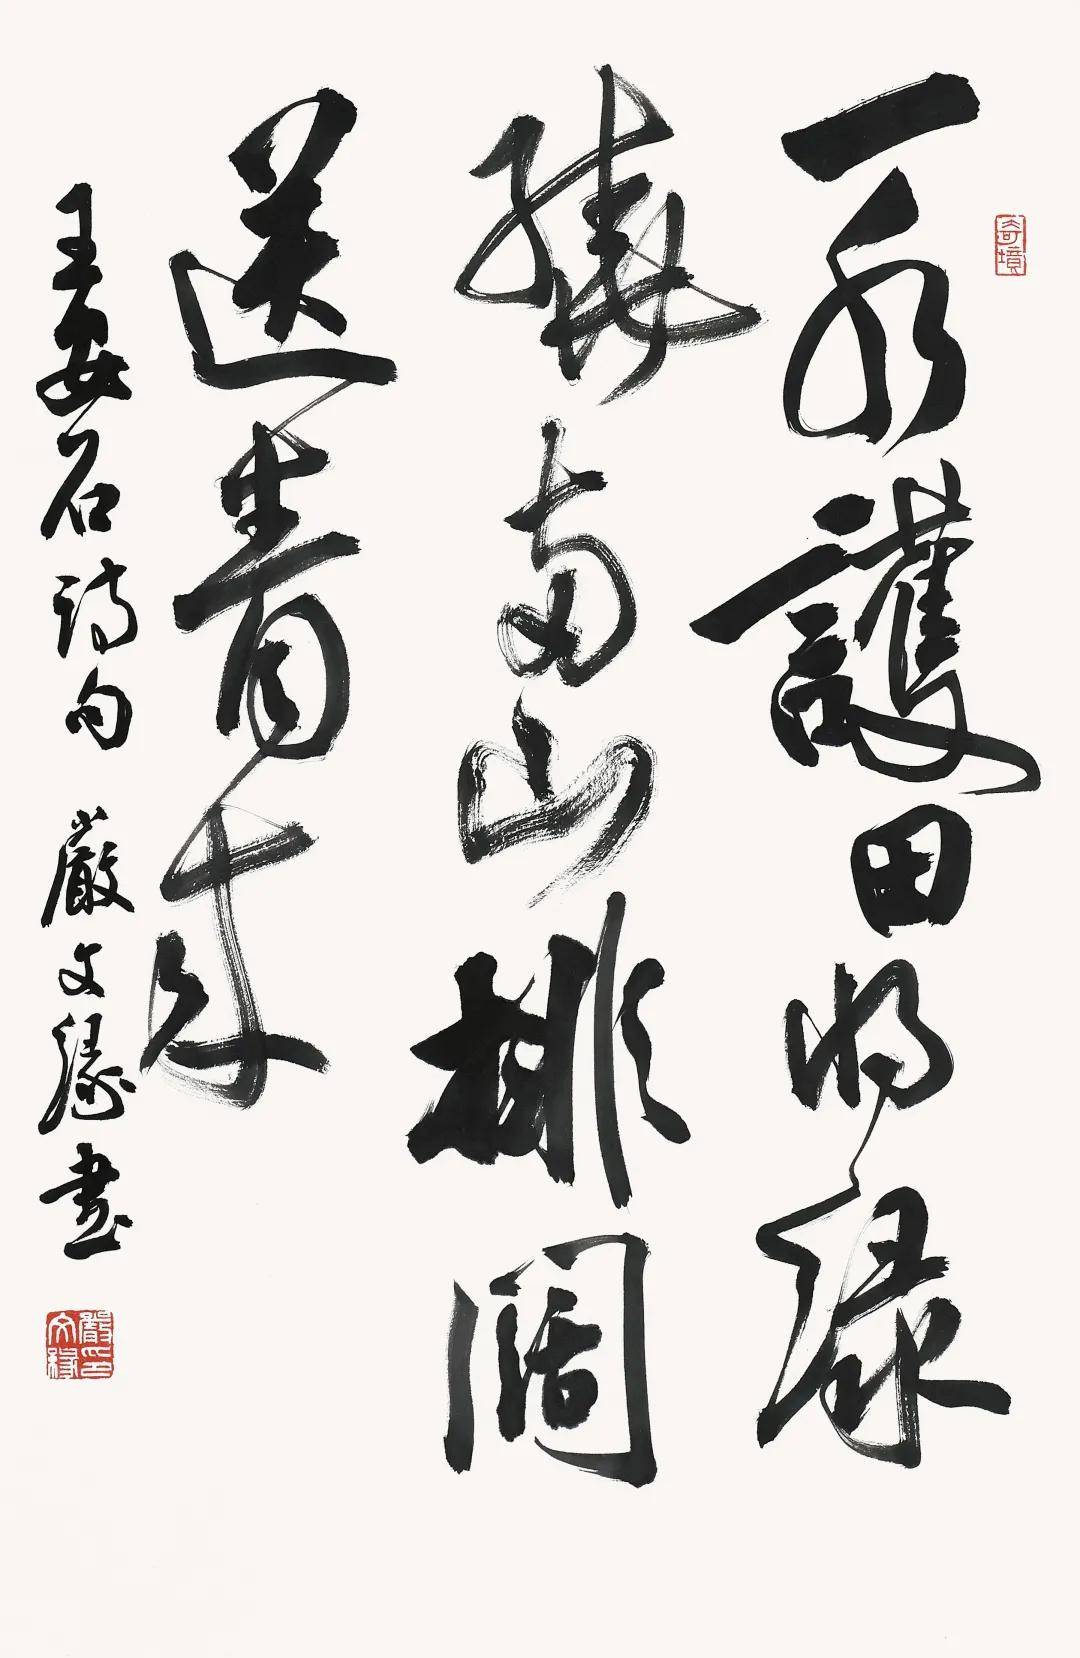 奇境
一水護田將綠
繞兩山排闊
送青來
王安石詩句 嚴文緣書
嚴文緣印